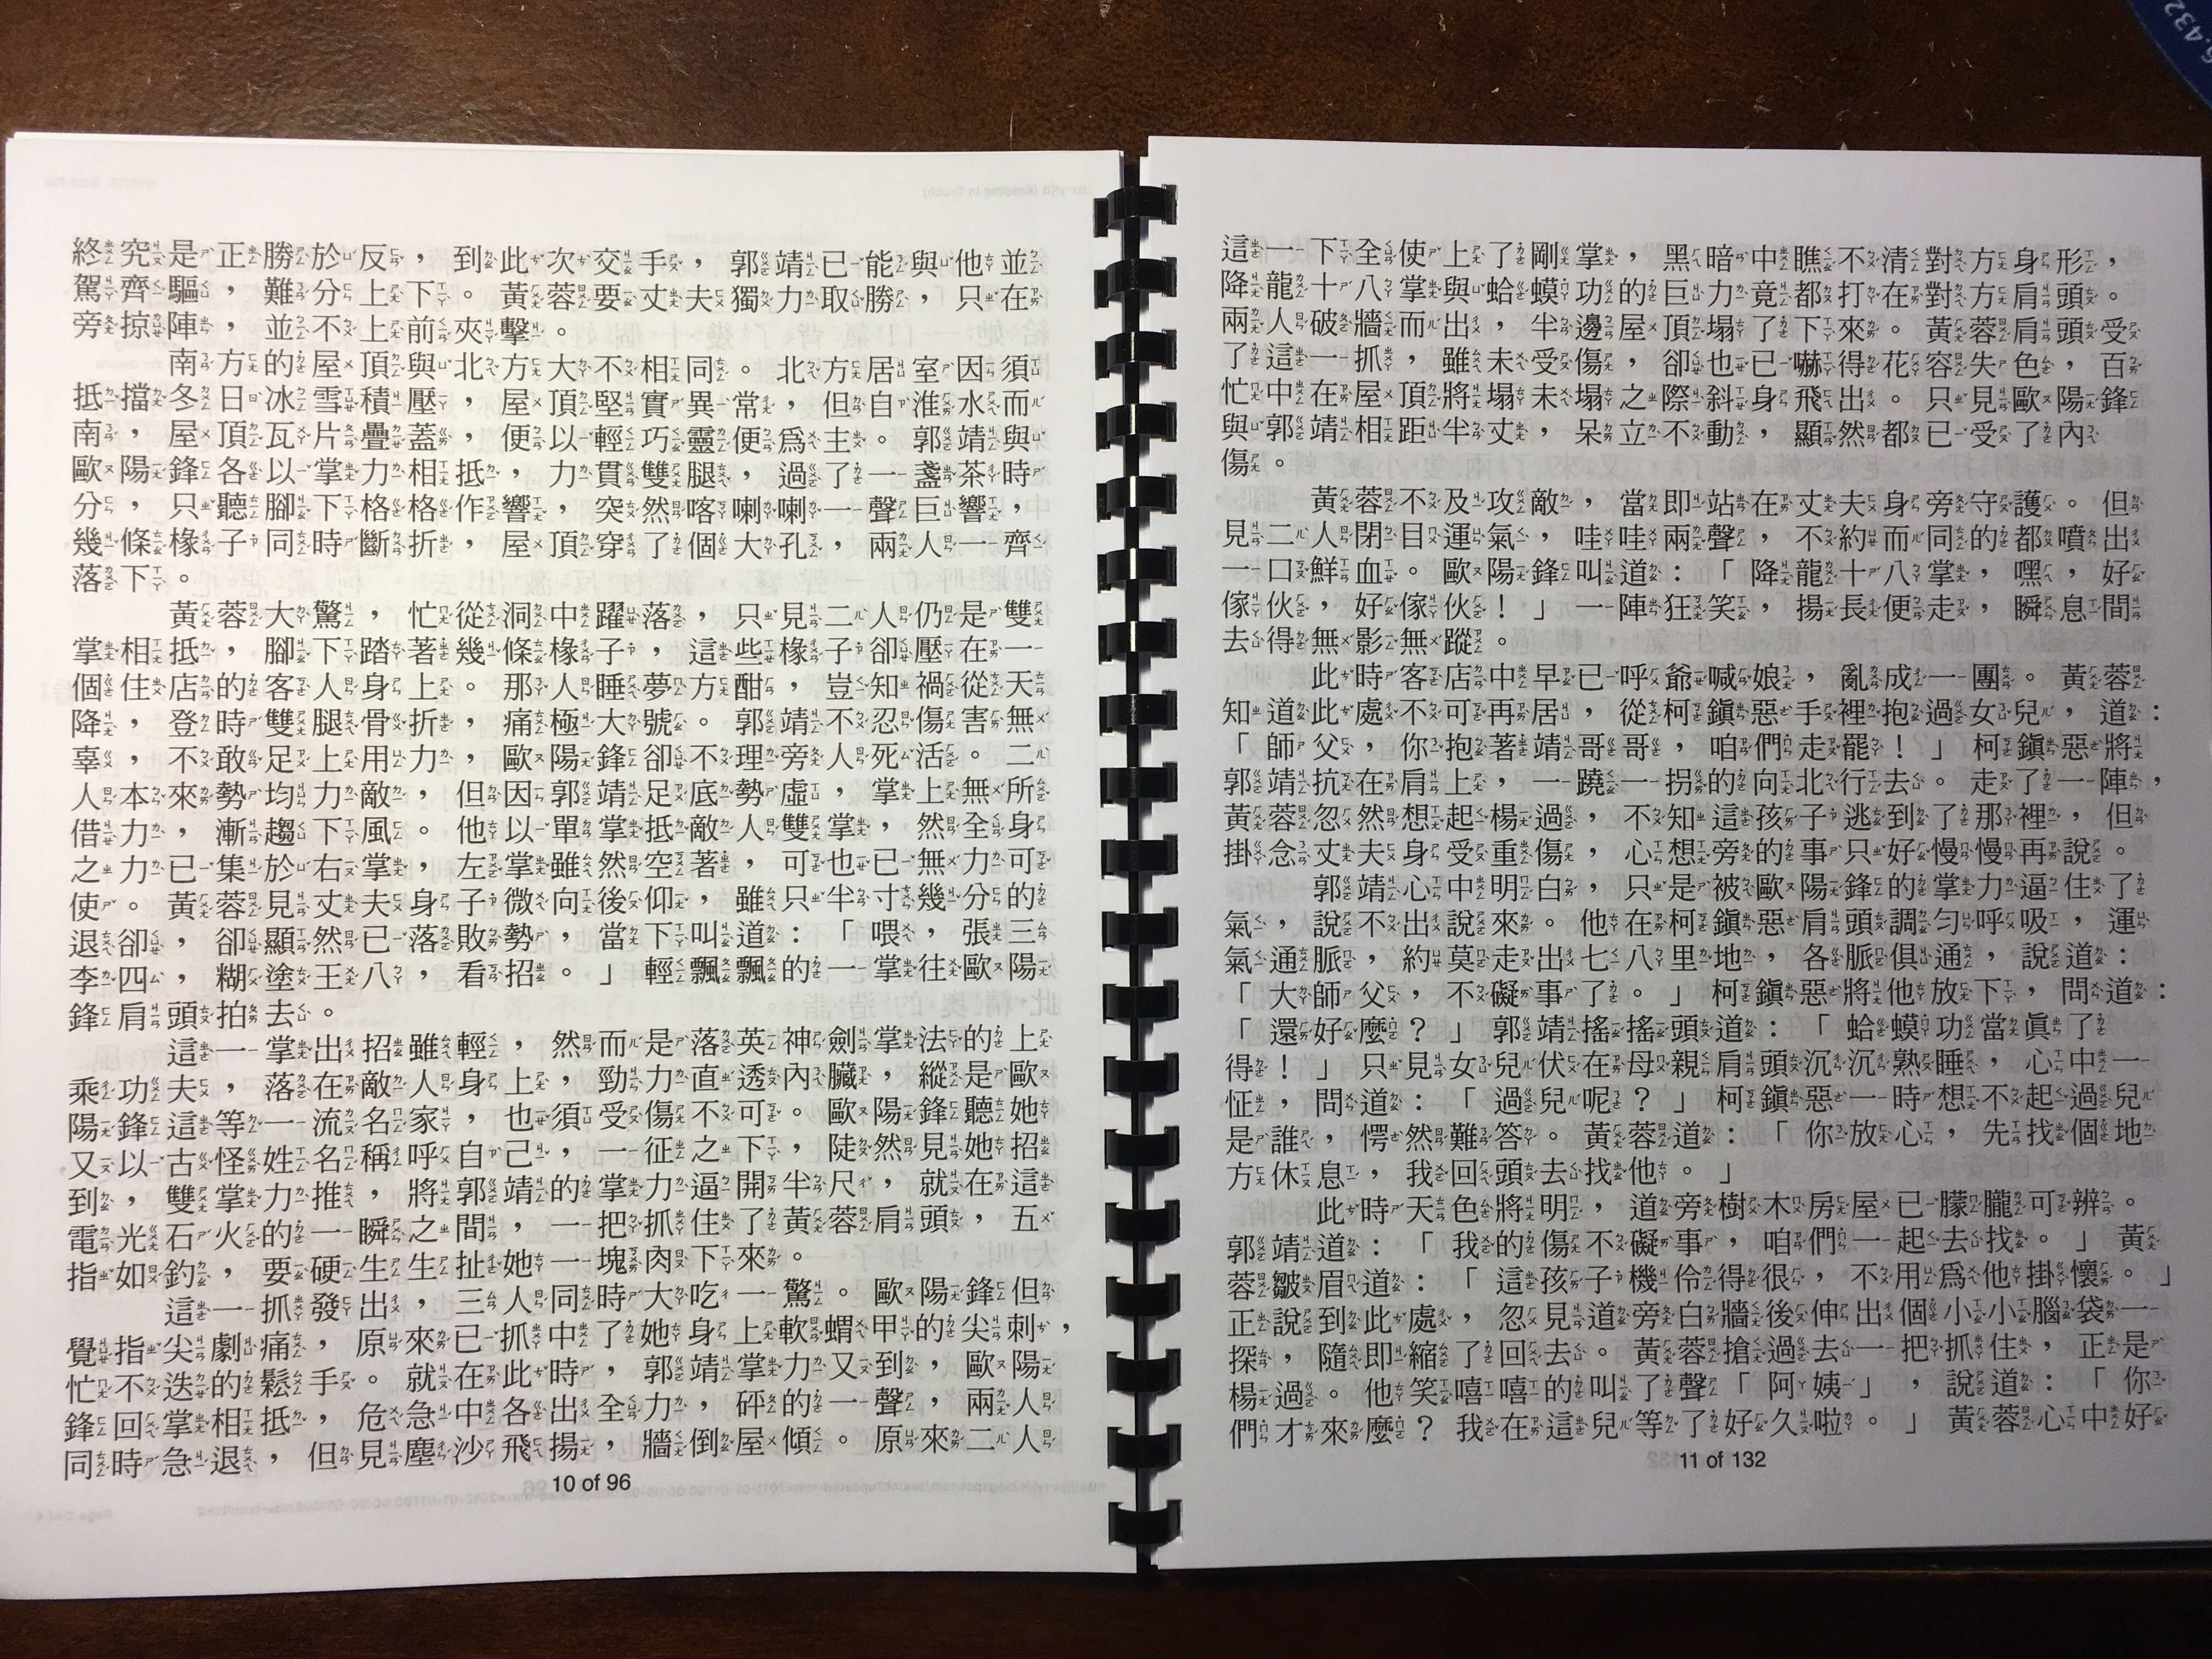 終究是正勝於反，到此次交手，郭靖已能與他並
駕齊驅，難分上下。黃蓉要丈夫獨力取勝，只在
旁掠陣，並不上前夾擊。
南方的屋頂與北方大不相同。北方居室因須
抵擋冬日冰雪積壓，屋頂堅實異常，但自淮水而
南，屋頂瓦片疊蓋，便以輕巧靈便為主。郭靖與
歐陽鋒各以掌力相抵，力貫雙腿，過了一盞茶時
分，只聽腳下格格作響，突然喀喇喇一聲巨響，
幾條椽子同時斷折，屋頂穿了個大孔，兩人一齊
落下。
黃蓉大驚，忙從洞中躍落，只見二人仍是雙
掌相抵，腳下踏著幾條椽子，這些椽子卻壓在一
個住店的客人身上。那人睡夢方酣，豈知禍從天
降，登時雙腿骨折，痛極大號。郭靖不忍傷害無
辜，不敢足上用力，歐陽鋒卻不理旁人死活。二
人本來勢均力敵，但因郭靖足底勢虛，掌上無所
借力，漸趨下風。他以單掌抵敵人雙掌，然全身
之力已集於右掌，左掌雖然空著，可也已無力可
使。黃蓉見丈夫身子微向後仰，雖只半寸幾分的
退卻，卻顯然已落敗勢，當下叫道：「喂，張三
李四，糊塗王八，看招。」輕飄飄的一掌往歐陽
鋒肩頭拍去。
這一掌出招雖輕，然而是落英神劍掌法的上
乘功夫，落在敵人身上，勁力直透內臟，縱是歐
陽鋒這等一流名家，也須受傷不可。歐陽鋒聽她
又以古怪姓名稱呼自己，一征之下，陡然見她招
到，雙掌力推，將郭靖的掌力逼開半尺，就在這
電光石火的一瞬之間，一把抓住了黃蓉肩頭，五
指如鈞，要硬生生扯她一塊肉下來。
這一抓發出，三人同時大吃一驚。歐陽鋒但
覺指尖劇痛，原來已抓中了她身上軟蝟甲的尖刺，
忙不迭的鬆手。就在此時，郭靖掌力又到，歐陽
鋒回掌相抵，危急中各出全力，砰的一聲，兩人
同時急退，但見塵沙飛揚，牆倒屋傾。原來二人
10 of 96
這一下全使上了剛掌，黑暗中瞧不清對方身形，
降龍十八掌與蛤蟆功的巨力竟都打在對方肩頭。
兩人破牆而出，半邊屋頂塌了下來。黃蓉肩頭受
了這一抓，雖未受傷，卻也已嚇得花容失色，百
忙中在屋頂將塌未塌之際斜身飛出。只見歐陽鋒
與郭靖相距半丈，呆立不動，顯然都已受了內
傷。
黃蓉不及攻敵，當即站在丈夫身旁守護。但
見二人閉目運氣，哇哇兩聲，不約而同的都噴出
一口鮮血。歐陽鋒叫道：「降龍十八掌，嘿，好
傢伙，好傢伙！」一陣狂笑，揚長便走，瞬息間
去得無影無蹤。
此時客店中早已呼爺喊娘，亂成一團。黃蓉
知道此處不可再居，從柯鎮惡手裡抱過女兒，道：
「師父，你抱著靖哥哥，咱們走罷！」柯鎮惡將
郭靖抗在肩上，一蹺一拐的向北行去。走了一陣，
黃蓉忽然想起楊過，不知這孩子逃到了那裡，但
掛念丈夫身受重傷，心想旁的事只好慢慢再說。
郭靖心中明白，只是被歐陽鋒的掌力逼住了
氣，說不出說來。他在柯鎮惡肩頭調勻呼吸，運
氣通脈，約莫走出七八里地，各脈俱通，說道：
「大師父，不礙事了。」柯鎮惡將他放下，問道：
「還好麼？」郭靖搖搖頭道：「蛤蟆功當真了
得！」只見女兒伏在母親肩頭沉沉熟睡，心中一
怔，問道：「過兒呢？」柯鎮惡一時想不起過兒
是誰，愕然難答。黃蓉道：「你放心，先找個地
方休息，我回頭去找他。」
此時天色將明，道旁樹木房屋已朦朧可辨。
郭靖道：「我的傷不礙事，咱們一起去找。」黃
蓉皺眉道：「這孩子機伶得很，不用為他掛懷。」
正說到此處，忽見道旁白牆後伸出個小小腦袋一
探，隨即縮了回去。黃蓉搶過去一把抓住，正是
楊過。他笑嘻嘻的叫了聲「阿姨」，說道：「你
們才來麼？我在這兒等了好久啦。」黃蓉心中好
11 of 132